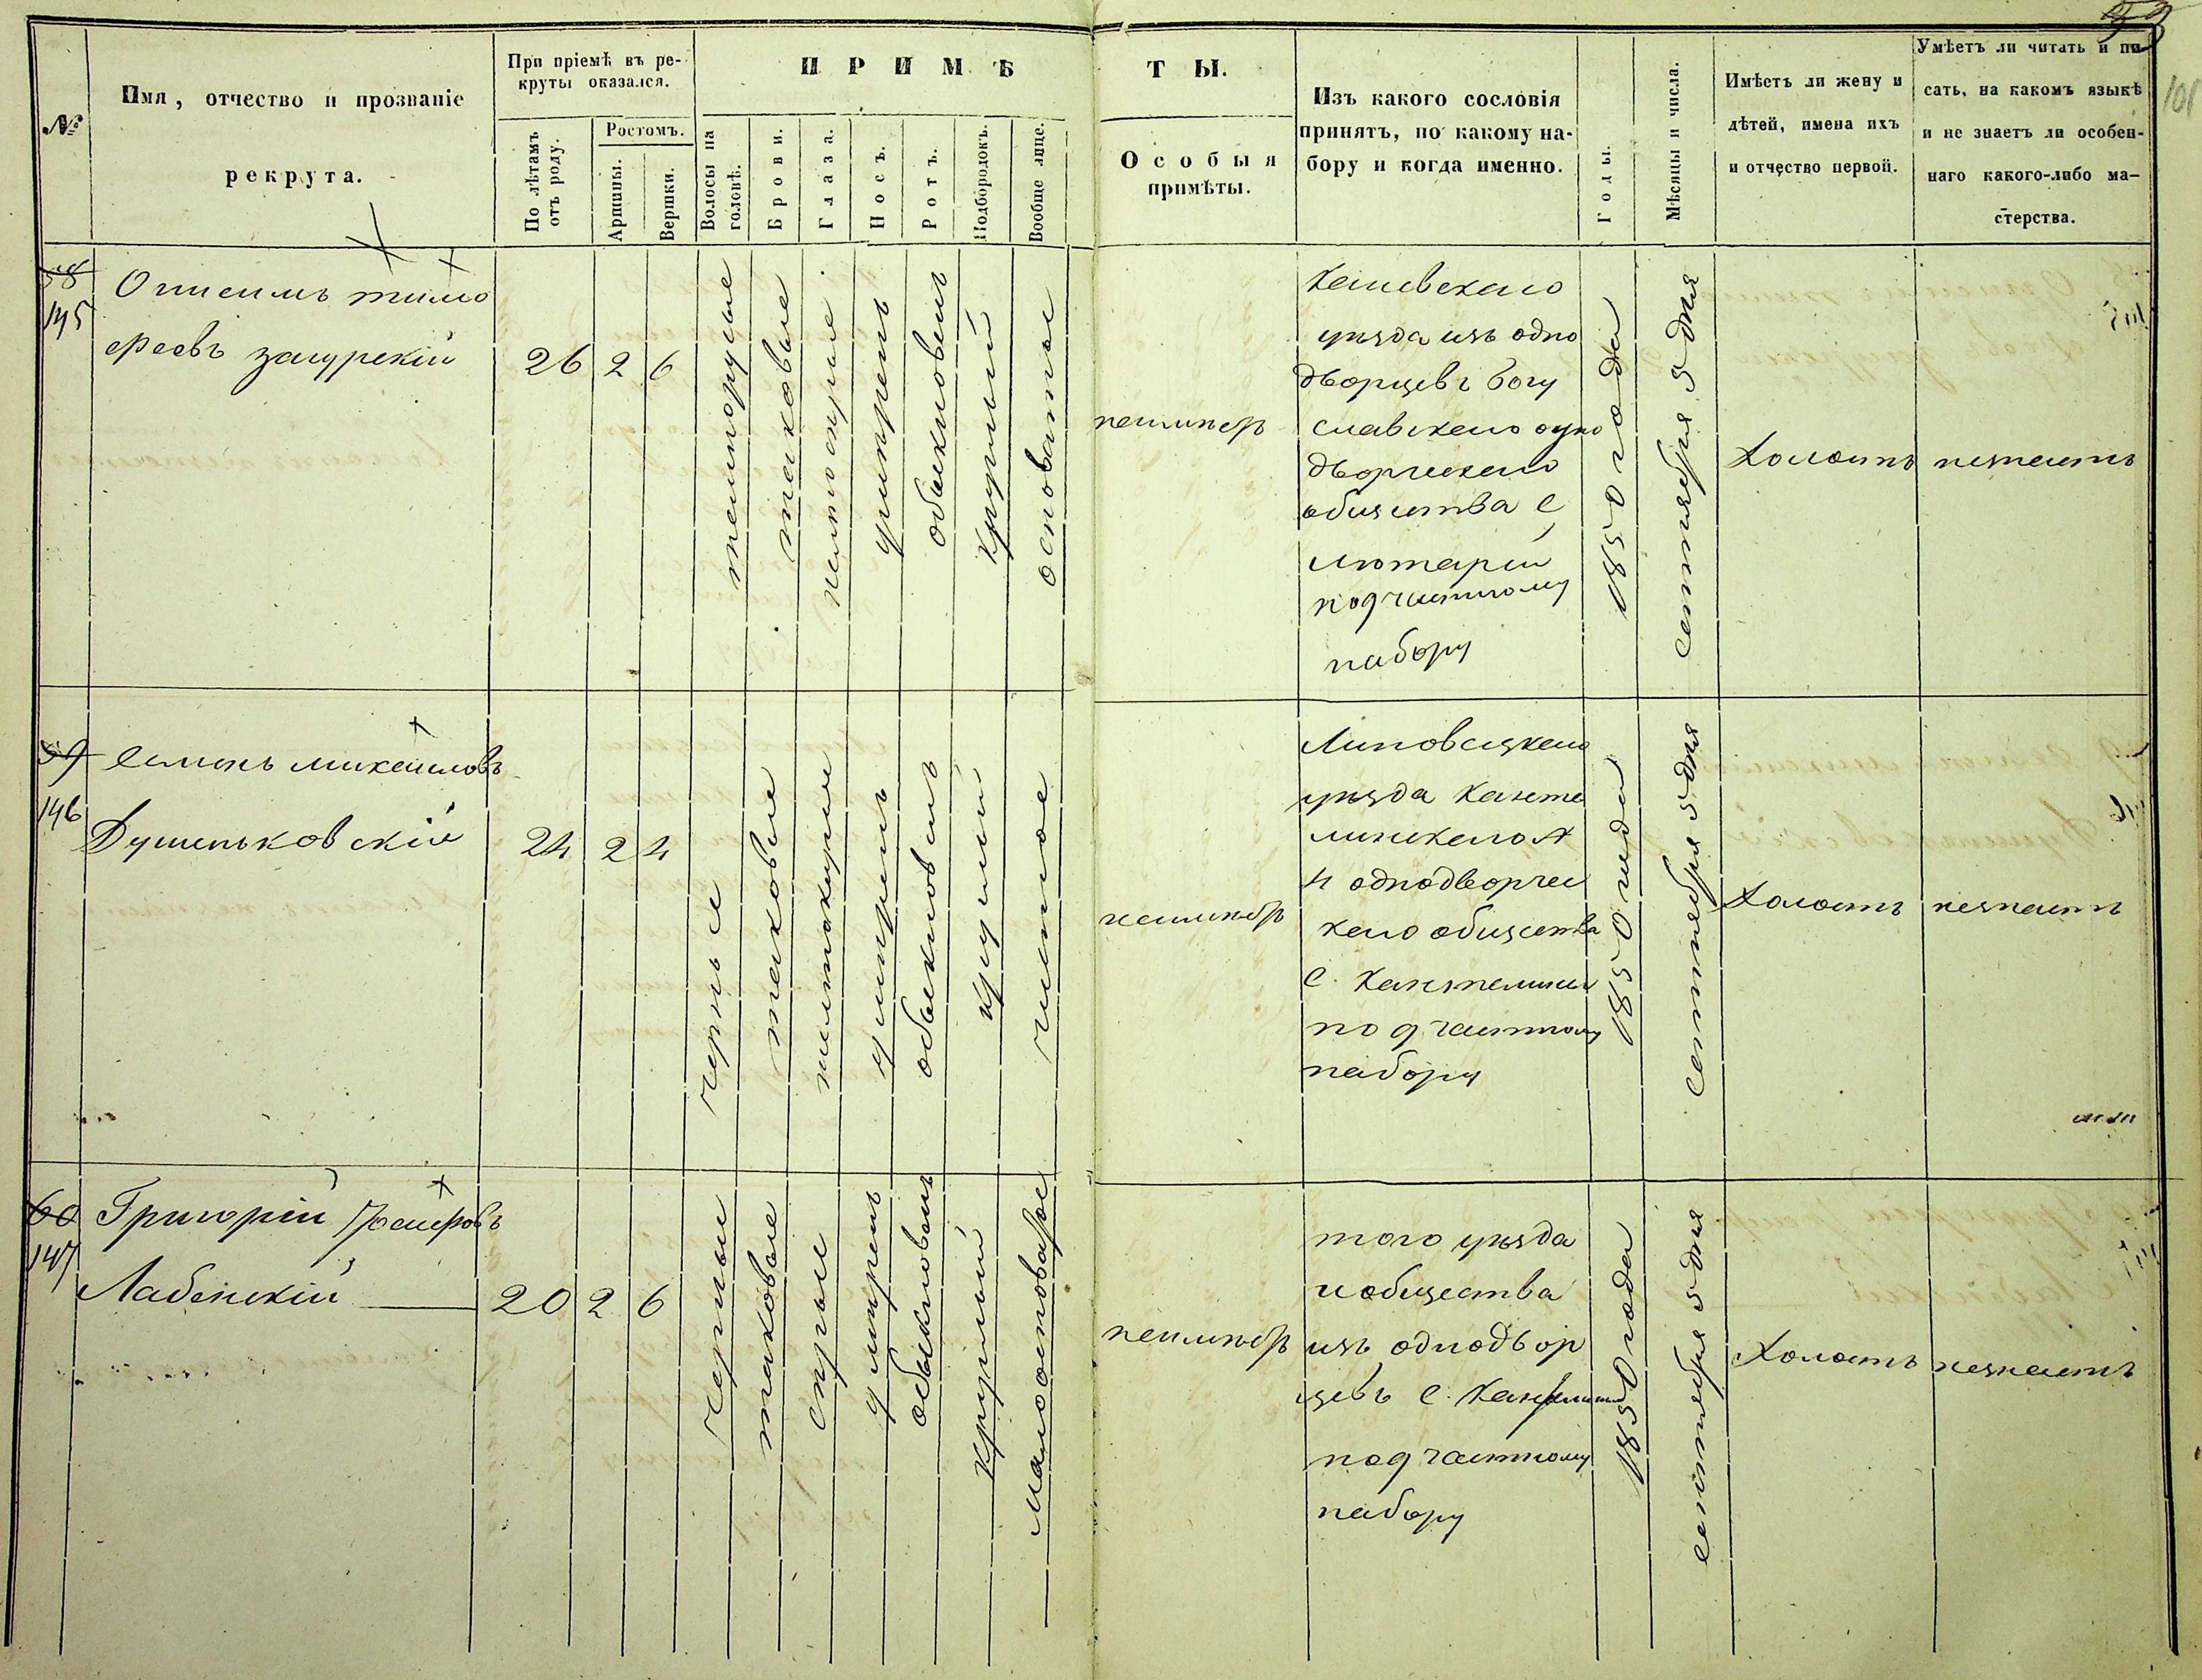 101
№
Имя, отчество и прозваніе
рекрута.
При пріемѣ въ ре-
круты оказался.
По лѣтамъ
отъ роду.
Ростомъ.
Аршины.
Вершки.
ПРИМѢ
ТЫ.
Волосы на
головѣ.
Брови.
Глаза.
Носъ.
Ротъ.
Подбородокъ.
Вообще лице.
Особыя
примѣты.
Изъ какого сословія
принятъ, по какому на-
бору и когда именно.
Годы.
Мѣсяцы и числа.
Имѣетъ ли жену и
дѣтей, имена ихъ
и отчество первой.
Умѣетъ ли читать и пи-
сать, на какомъ языкѣ
и не знаетъ ли особен-
наго какого-либо ма-
стерства.
58
145
Онисимъ тимо
феевъ загурскій
26
2
6
темнорусые
таковые
желтосѣрые
умѣренъ
обыкновенъ
круглый
осповатое
неимѣетъ
Каневскаго
уѣзда изъ одно
дворцевъ богу
славскаго одно
дворческаго
общества С
лютарей
под частному
набору
1850 года
сентября 5 дня
Холостъ
незнаетъ
59
146
Семенъ михайловъ
Душеньковскій
24
2
4
черные
таковые
желтокаріе
умѣренъ
обыкновенъ
круглый
чистое
неимѣетъ
Липовецкаго
уѣздаКанте
линскаго
однодворчес
каго общества
С. Кантелины
под частному
набору
1850 года
сентября 5 дня
Холостъ
незнаетъ
60
147
Григорій
Лабенскій
20
2
6
черные
таковые
сѣрые
умѣренъ
обыкновенъ
круглый
Малоосповатое
неимѣетъ
того уѣзда
и общества
изъ однодвор
цевъ С.
под частному
набору
1850 года
сентября 5 дня
Холостъ
незнаетъ